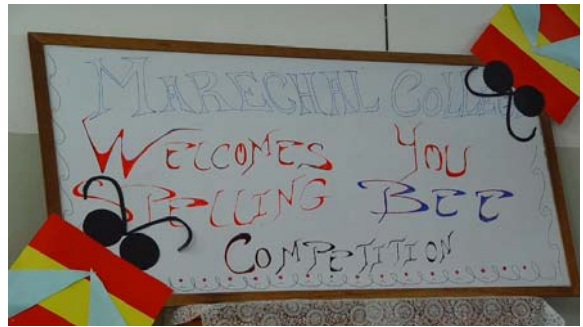 MARECHAL
WELCOMES YOU
SPELLING BEE
COMPETITION